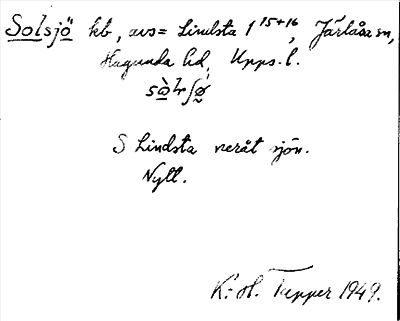 Solsjö kb, avs= Lindsta 1¹⁵⁺¹⁶, Järlåsa sn,
Hagunda hd, Upps. l.
S Lindsta neråt sjön.
Nytt.
K.-H. Tepper 1949.